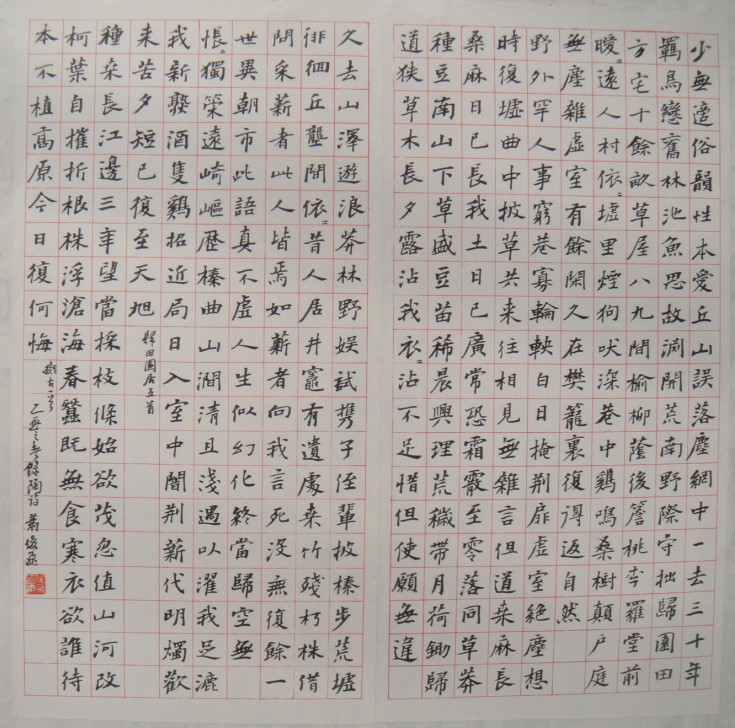 少無適俗韻性本愛丘山誤落塵網中一去三十年
羈鳥戀舊林池魚思故淵開荒南野際守拙歸園田
方宅十餘畝草屋八九間榆柳蔭後簷桃李羅堂前
曖〻遠人村依〻墟里煙狗吠深巷中鷄鳴桑樹顛戶庭
無塵雜虛室有餘閑久在樊籠裏復得返自然
野外罕人事窮巷寡輪鞅白日掩荆扉虛室絕塵想
時復墟曲中披草共来往相見無雜言但道桒麻長
桑麻日已長我土日已廣常恐霜霰至零落同草莽
種豆南山下草盛豆苗稀晨興理荒穢帶月荷鋤歸
道狹草木長夕露沾我衣〻沾不足惜但使願無違
久去山澤遊浪莽林野娛試携子侄輩披榛步荒墟
徘徊丘壟間依〻昔人居井竈有遺處桒竹殘朽株借
問采薪者此人皆焉如薪者向我言死没無復餘一
世異朝市此語真不虛人生似幻化終當歸空無
悵〻獨策遠崎嶇歷榛曲山澗清且淺遇以濯我足漉
我新熟酒隻鷄招近局日入室中闇荆薪代明燭歡
来苦夕短已復至天旭
歸田園居五首
種桒長江邊三年望當採枝條始欲茂忽值山河改
柯葉自摧折根株浮滄海春蠶既無食寒衣欲誰待
本不植高原今日復何悔
擬古一首
乙錄陶詩 蕭俊